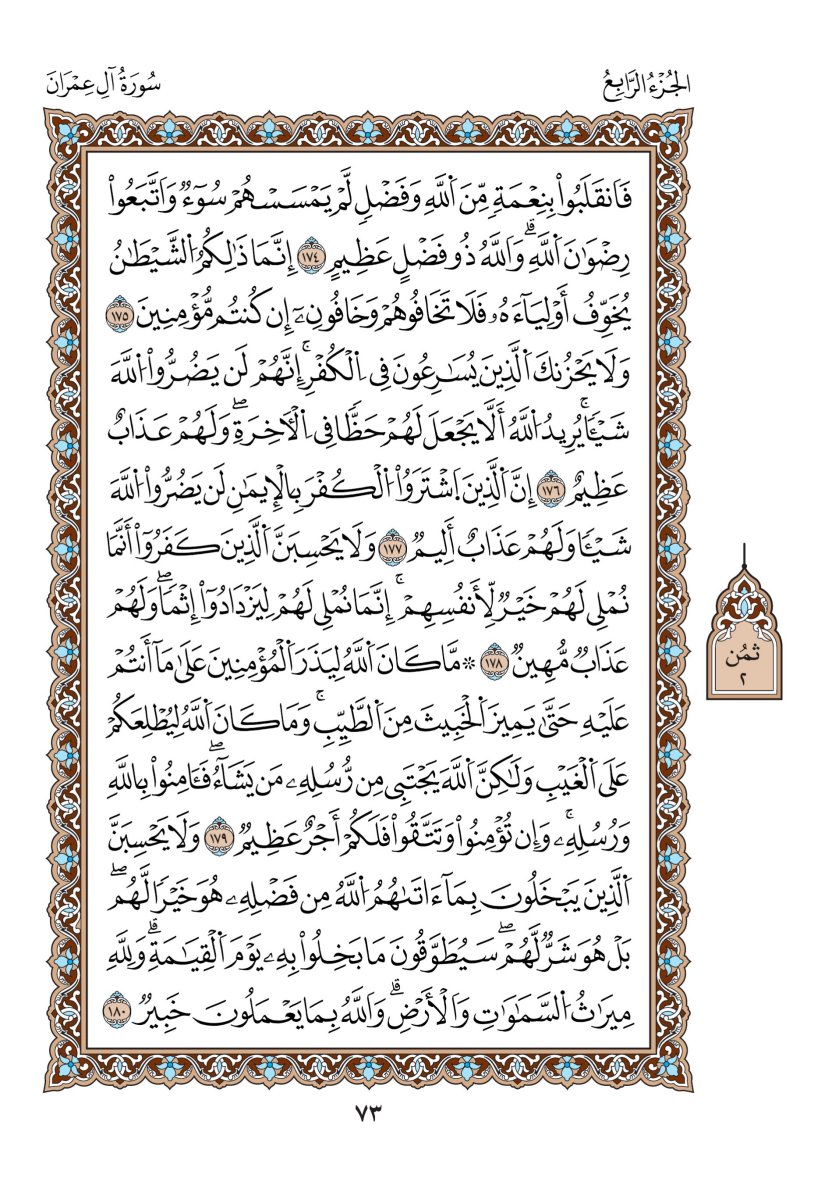 الجُزْءُ الرَّابِعُ
سُورَةُ آلِ عِمْرَانَ
فَانقَلَبُواْ بِنِعْمَةٖ مِّنَ اَ۬للَّهِ وَفَضْلٖ لَّمْ يَمْسَسْهُمْ سُوٓءٞ وَاتَّبَعُواْ
رِضْوَٰنَ اَ۬للَّهِۗ وَاللَّهُ ذُو فَضْلٍ عَظِيمٍ ١٧٤ إِنَّمَا ذَٰلِكُمُ اُ۬لشَّيْطَٰنُ
يُخَوِّفُ أَوْلِيَآءَهُۥ فَلَا تَخَافُوهُمْ وَخَافُونِۦٓ إِن كُنتُم مُّؤْمِنِينَ ١٧٥
وَلَا يَحْزُنكَ اَ۬لَّذِينَ يُسَٰرِعُونَ فِي اِ۬لْكُفْرِۚ إِنَّهُمْ لَن يَضُرُّواْ اُ۬للَّهَ
شَيْـٔٗاۚ يُرِيدُ اُ۬للَّهُ أَلَّا يَجْعَلَ لَهُمْ حَظّٗا فِي اِ۬لْأٓخِرَةِۖ وَلَهُمْ عَذَابٌ
عَظِيمٌ ١٧٦ إِنَّ اَ۬لَّذِينَ اَ۪شْتَرَوُاْ اُ۬لْكُفْرَ بِالْإِيمَٰنِ لَن يَضُرُّواْ اُ۬للَّهَ
شَيْـٔٗا وَلَهُمْ عَذَابٌ أَلِيمٞ ١٧٧ وَلَا يَحْسِبَنَّ اَ۬لَّذِينَ كَفَرُوٓاْ أَنَّمَا
نُمْلِي لَهُمْ خَيْرٞ لِّأَنفُسِهِمْۚ إِنَّمَا نُمْلِي لَهُمْ لِيَزْدَادُوٓاْ إِثْمٗاۖ وَلَهُمْ
عَذَابٞ مُّهِينٞ ١٧٨ ۞ مَّا كَانَ اَ۬للَّهُ لِيَذَرَ اَ۬لْمُؤْمِنِينَ عَلَىٰ مَآ أَنتُمْ
عَلَيْهِ حَتَّىٰ يَمِيزَ اَ۬لْخَبِيثَ مِنَ اَ۬لطَّيِّبِۚ وَمَا كَانَ اَ۬للَّهُ لِيُطْلِعَكُمْ
عَلَى اَ۬لْغَيْبِ وَلَٰكِنَّ اَ۬للَّهَ يَجْتَبِي مِن رُّسُلِهِۦ مَن يَشَآءُۖ فَـَٔامِنُواْ بِاللَّهِ
وَرُسُلِهِۦۚ وَإِن تُؤْمِنُواْ وَتَتَّقُواْ فَلَكُمْ أَجْرٌ عَظِيمٞ ١٧٩ وَلَا يَحْسِبَنَّ
اَ۬لَّذِينَ يَبْخَلُونَ بِمَآ ءَاتَىٰهُمُ اُ۬للَّهُ مِن فَضْلِهِۦ هُوَ خَيْرٗا لَّهُمۖ
بَلْ هُوَ شَرّٞ لَّهُمْۖ سَيُطَوَّقُونَ مَا بَخِلُواْ بِهِۦ يَوْمَ اَ۬لْقِيَٰمَةِۗ وَلِلَّهِ
مِيرَٰثُ اُ۬لسَّمَٰوَٰتِ وَالْأَرْضِۗ وَاللَّهُ بِمَا يَعْمَلُونَ خَبِيرٞ ١٨٠
ثُمُن
٢
٧٣